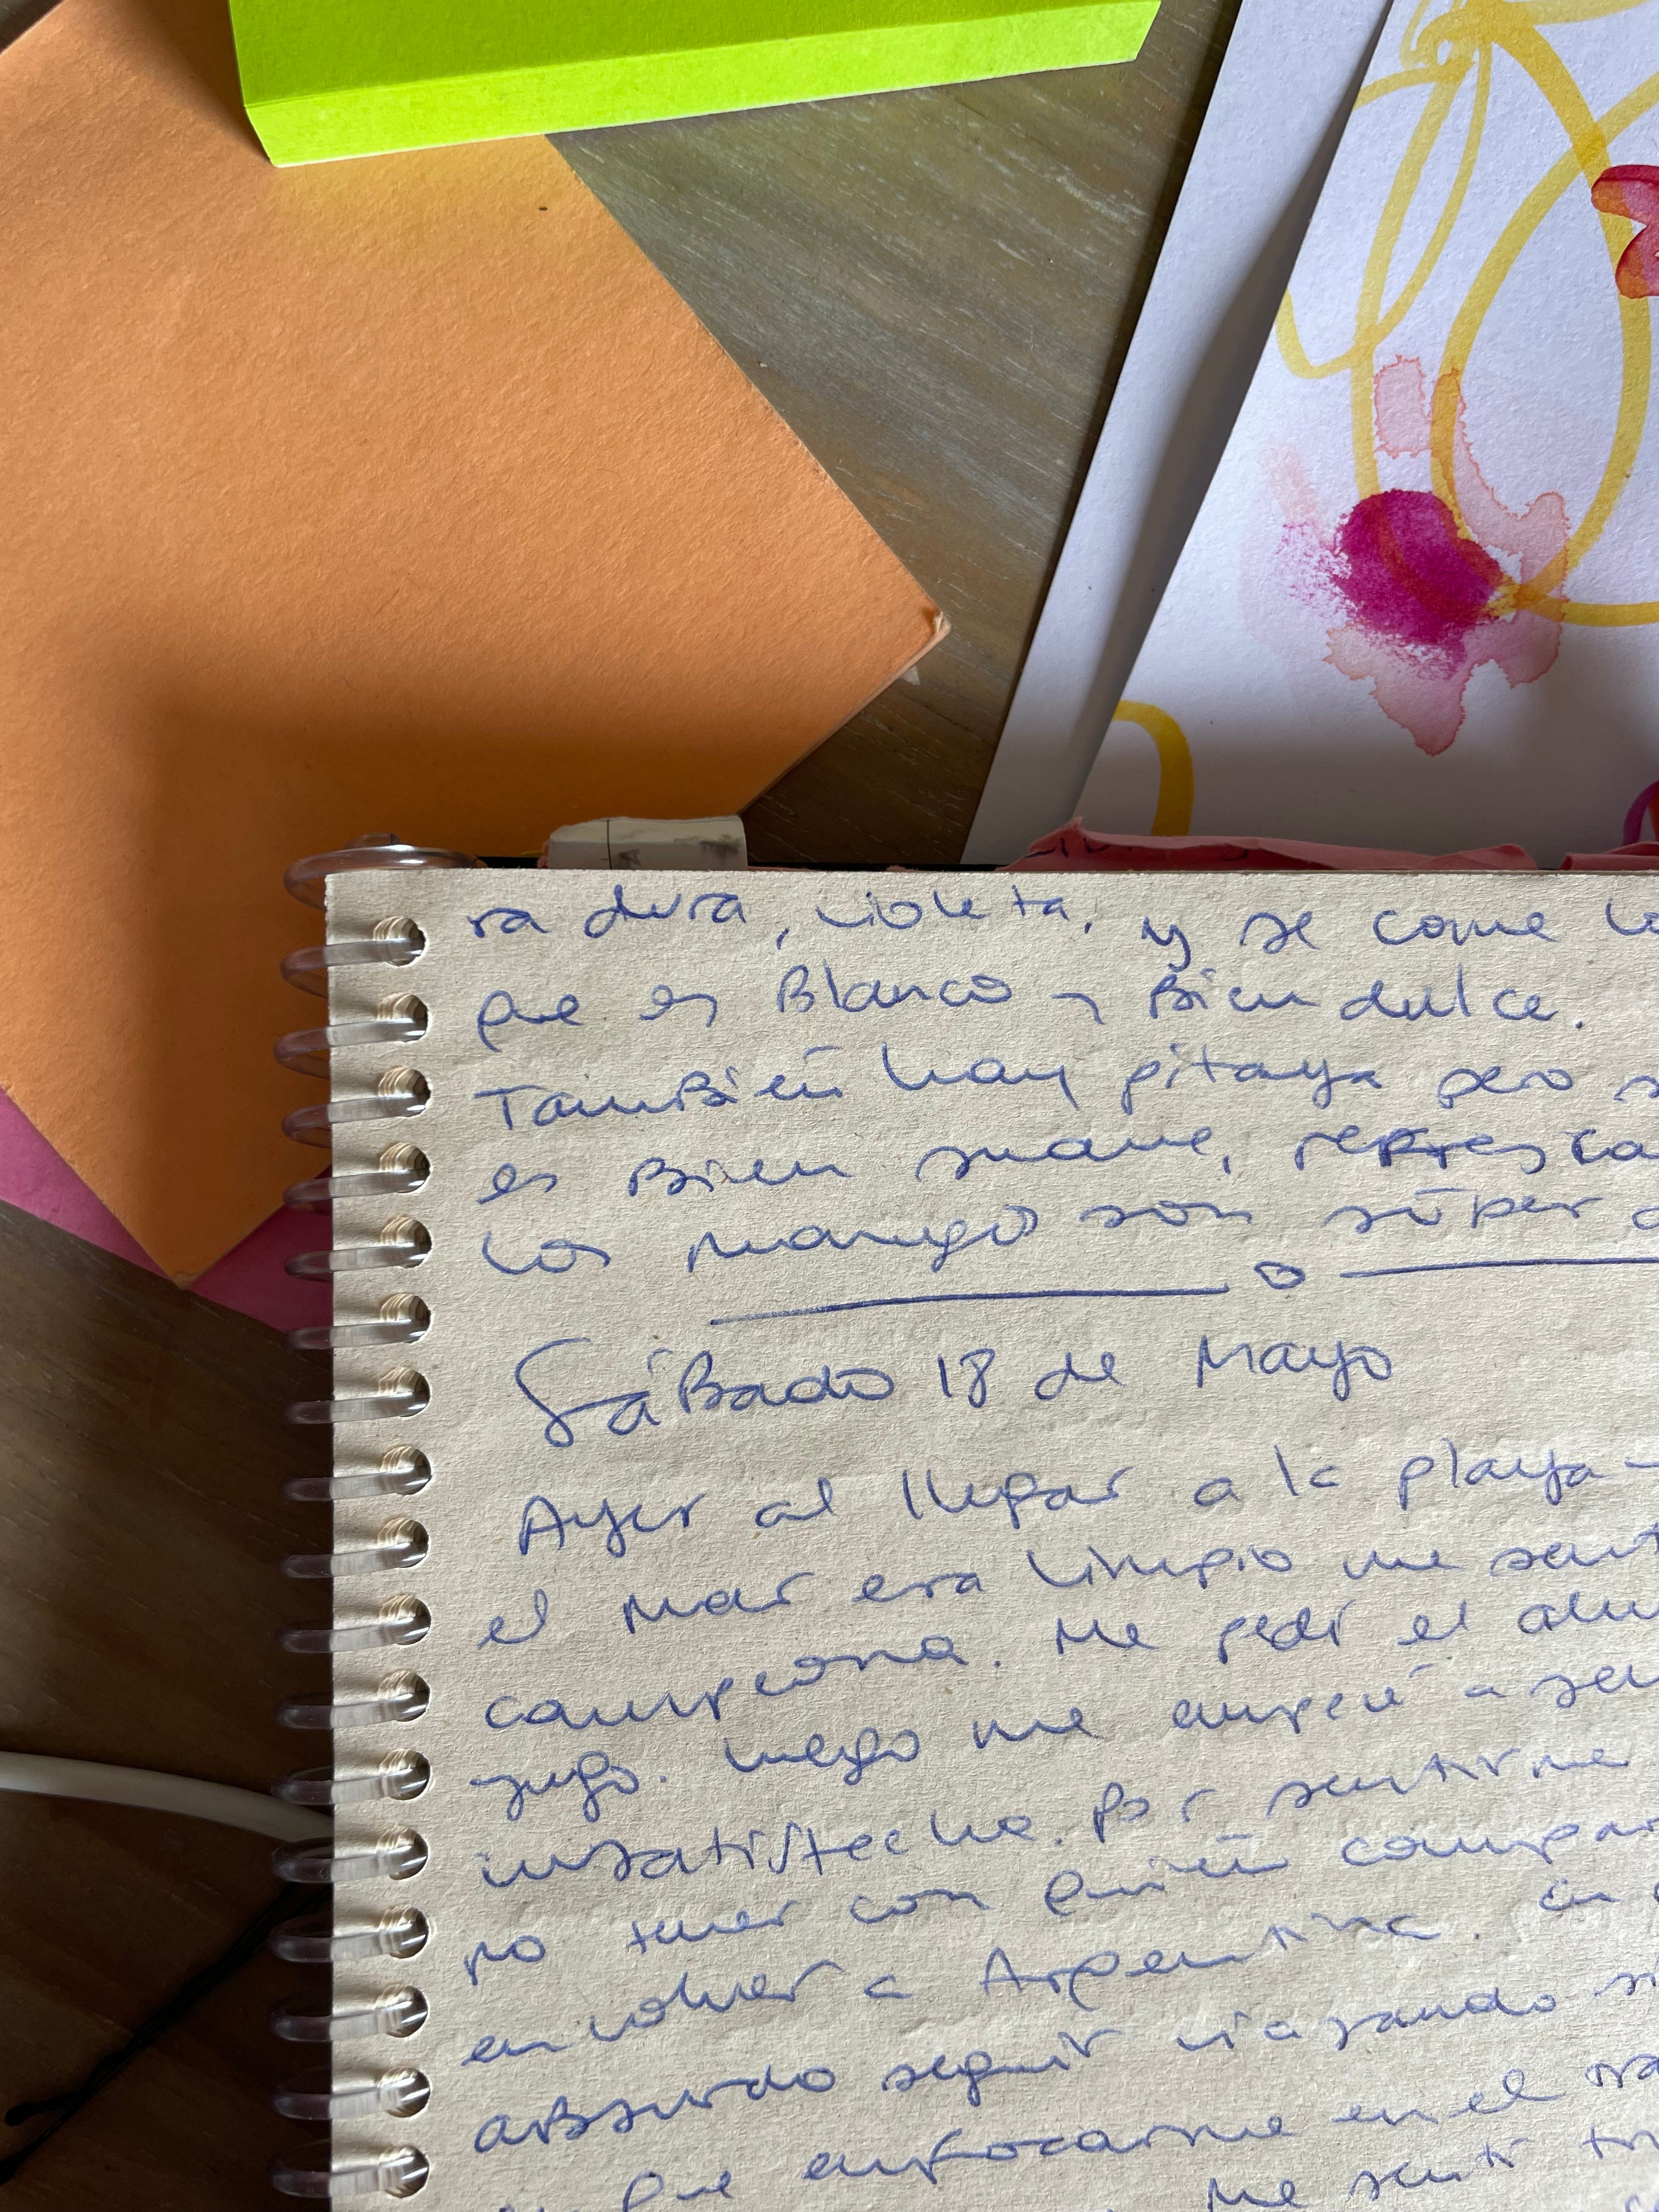 ra dura, violeta, y se come lo
que es Blanco y Bien dulce.
También hay pitaya pero
es Bien suave,
los mango son súper
o
Sábado 18 de Mayo
Ayer al llegar a la playa
el mar era limpio me
campeona. Me pedí el
jugo. Luego me empecé a
insatisfecha. Por sentirme
no tener con quién
en volver a Argentina. en
absurdo seguir viajando
que enfocarme en el
Me sentí